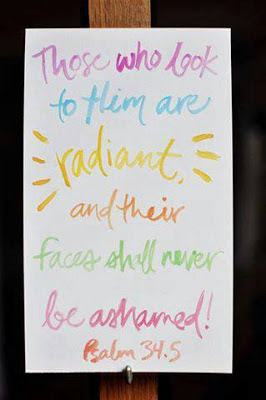 Those who look
to Him are
radiant,
and their
faces shall never
be ashamed!
Psalm 34.5